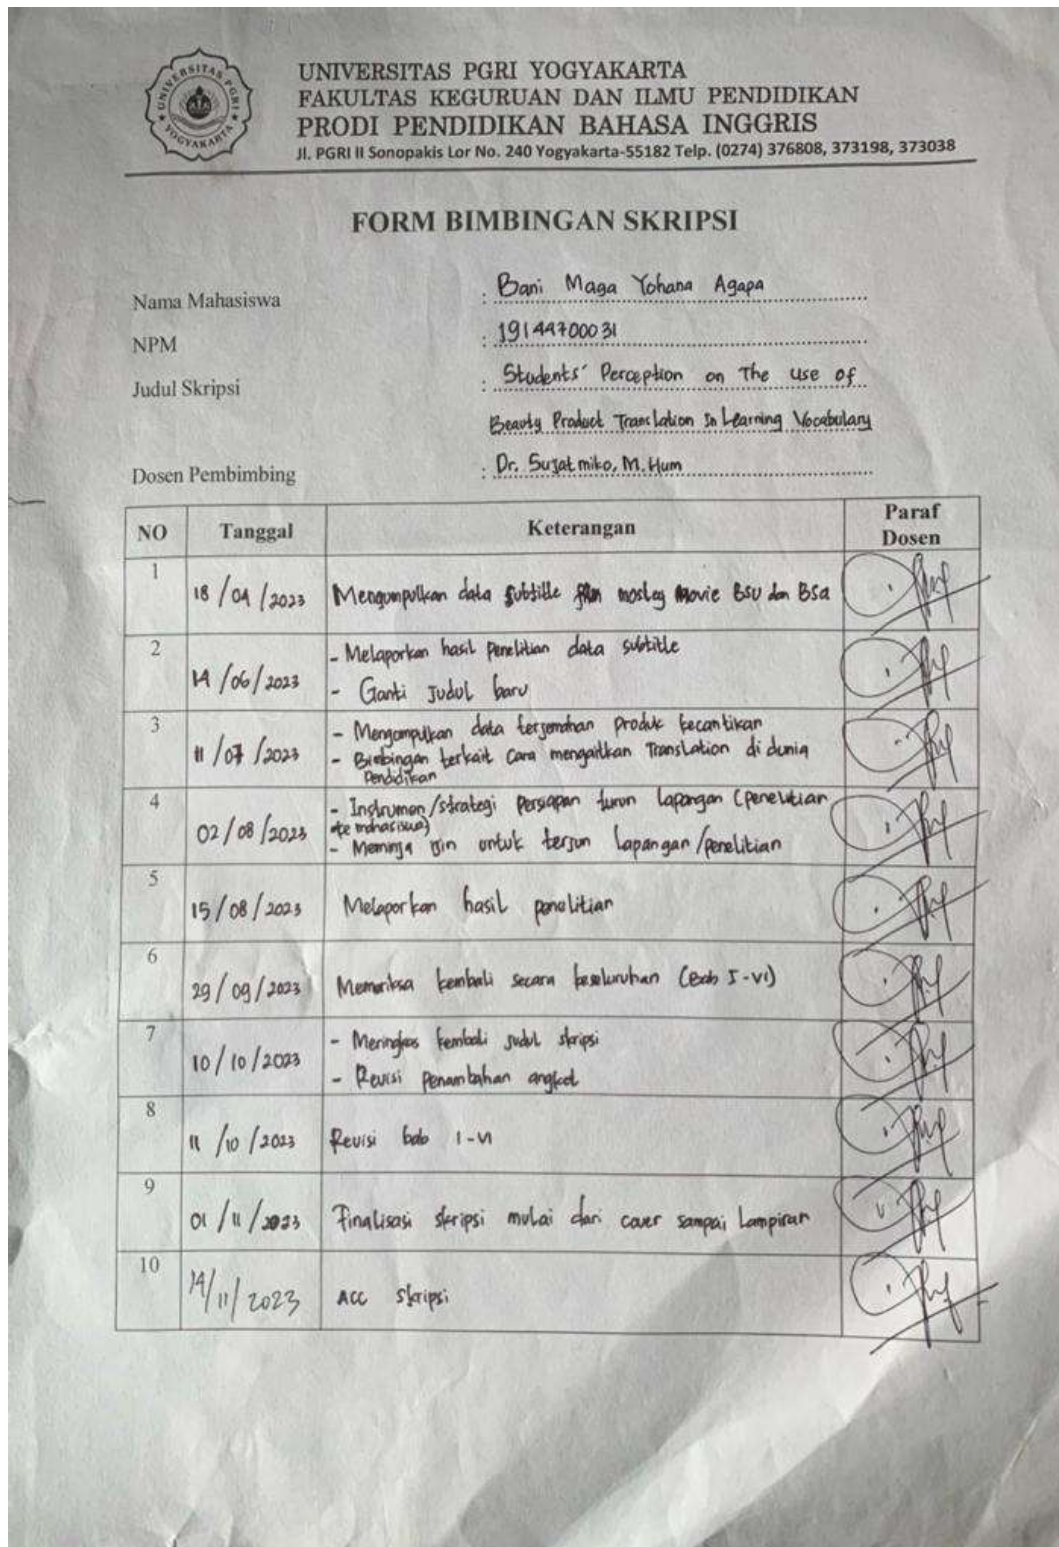 UNIVERSITAS PGRI YOGYAKARTA
UNIVERSITAS PGRI YOGYAKARTA
FAKULTAS KEGURUAN DAN ILMU PENDIDIKAN
PRODI PENDIDIKAN BAHASA INGGRIS
Jl. PGRI II Sonopakis Lor No. 240 Yogyakarta-55182 Telp. (0274) 376808, 373198, 373038
FORM BIMBINGAN SKRIPSI
Nama Mahasiswa : Bani Maga Yohana Agapa
NPM : 19144700031
Judul Skripsi : Students' Perception on The use of
Beauty Product Translation In Learning Vocabulary
Dosen Pembimbing : Dr. Sujatmiko, M.Hum
NO Tanggal Keterangan Paraf Dosen
1 18/04/2023 Mengumpulkan data subtitle film mosley movie BSU dan BSa
2 14/06/2023 - Melaporkan hasil penelitian data subtitle
- Ganti judul baru
3 11/07/2023 - Mengumpulkan data terjemahan produk kecantikan
- Bimbingan terkait cara mengaitkan Translation di dunia
Pendidikan
4 02/08/2023 - Instrumen/strategi persiapan turun lapangan (penelitian
ke mahasiswa)
- Meminta izin untuk terjun lapangan/penelitian
5 15/08/2023 Melaporkan hasil penelitian
6 29/09/2023 Memeriksa kembali secara keseluruhan (Bab I-VI)
7 10/10/2023 - Meringkas kembali judul skripsi
- Revisi penambahan angket
8 11/10/2023 Revisi bab I-VI
9 01/11/2023 Finalisasi skripsi mulai dari cover sampai Lampiran
10 14/11/2023 ACC Skripsi